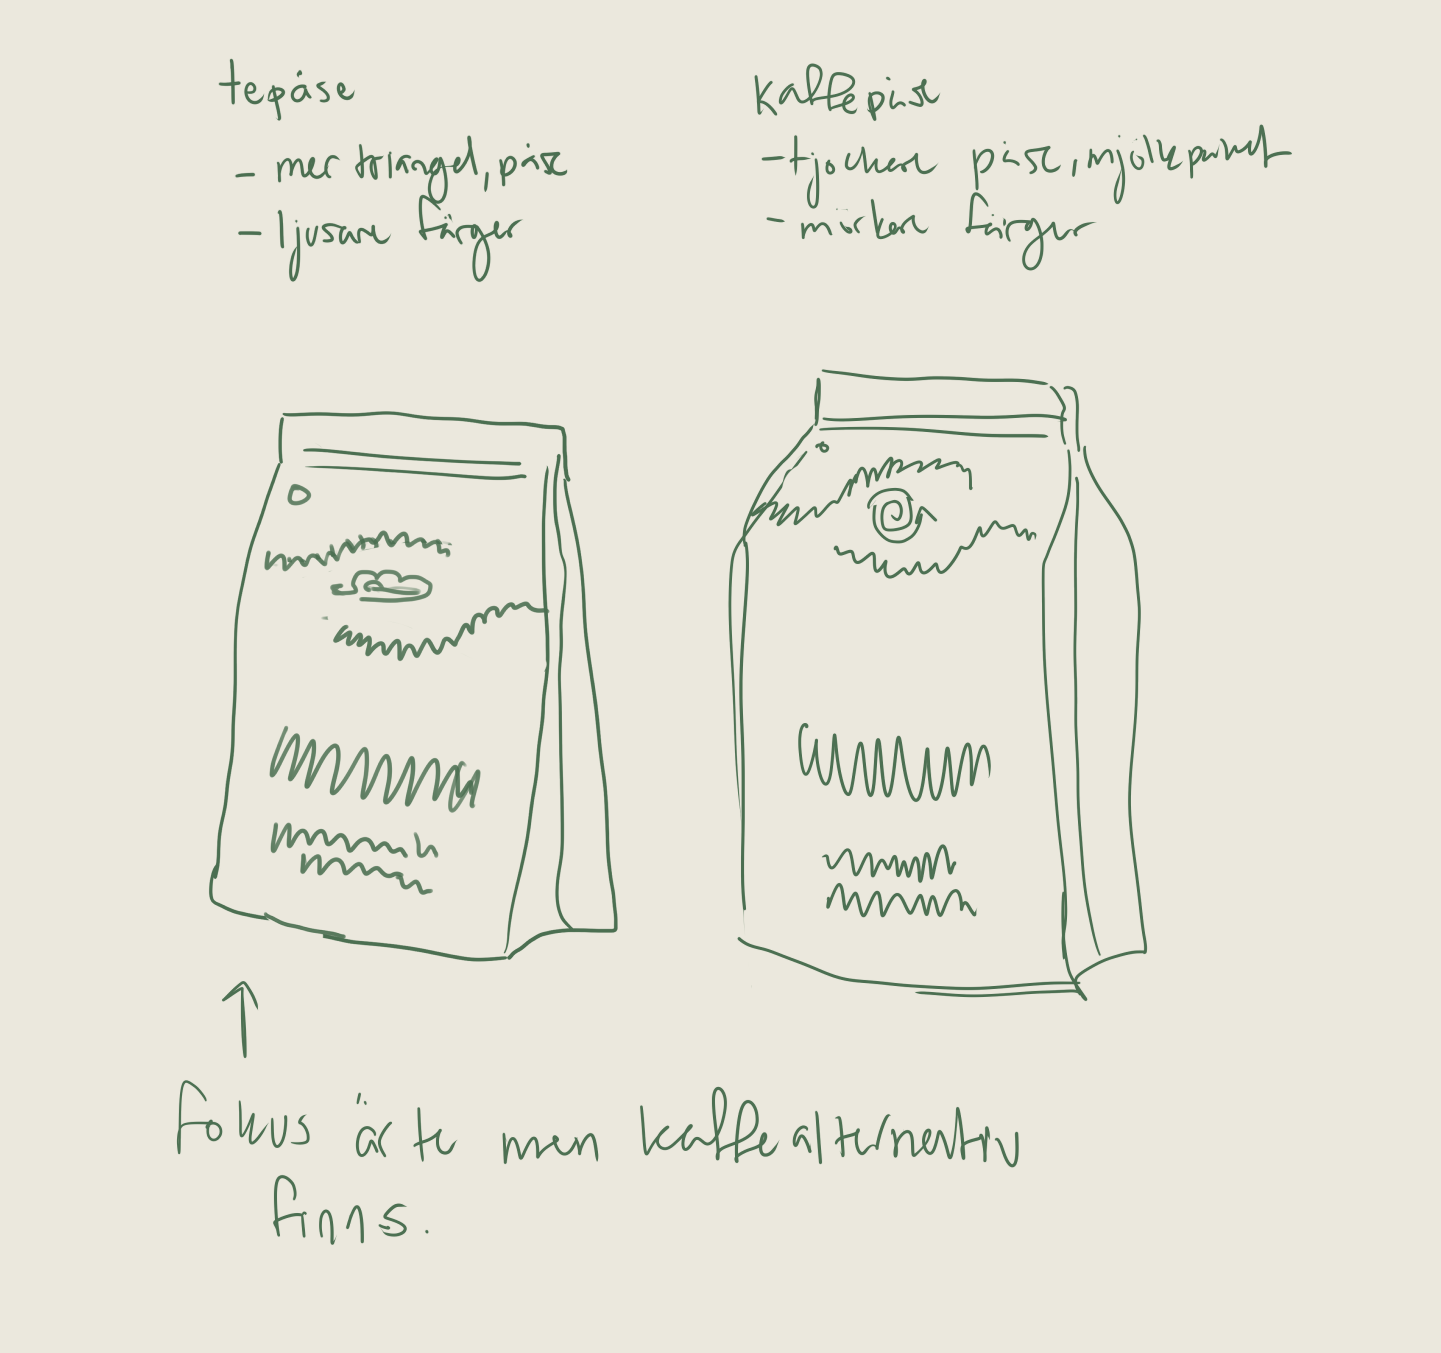 tepåse
- mer triangel, påse
- ljusare färger
kaffepåse
- tjockare påse, mjölkpaket
- mörkare färger
Fokus är te men kaffealternativ
finns.